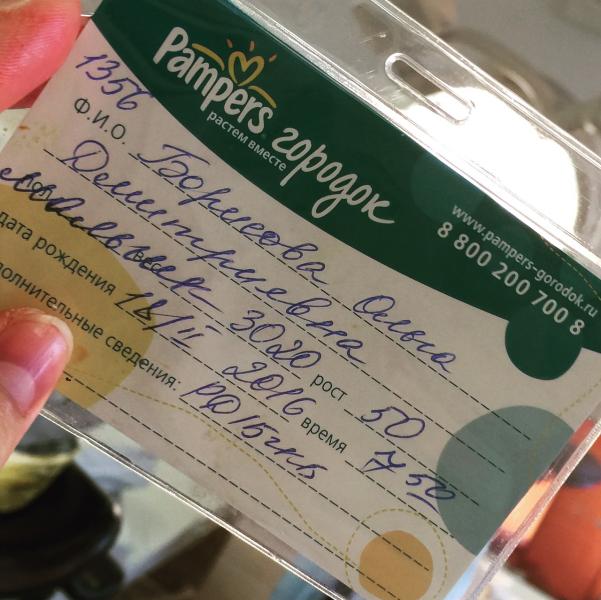 Pampers
растем вместе
городок
www.pampers-gorodok.ru
8 800 200 700 8
1356
Ф.И.О. Борисова Ольга
Дмитриевна
мальчик 3020 рост 50
дата рождения 18/II 2016 время 7 50
полнительные сведения: